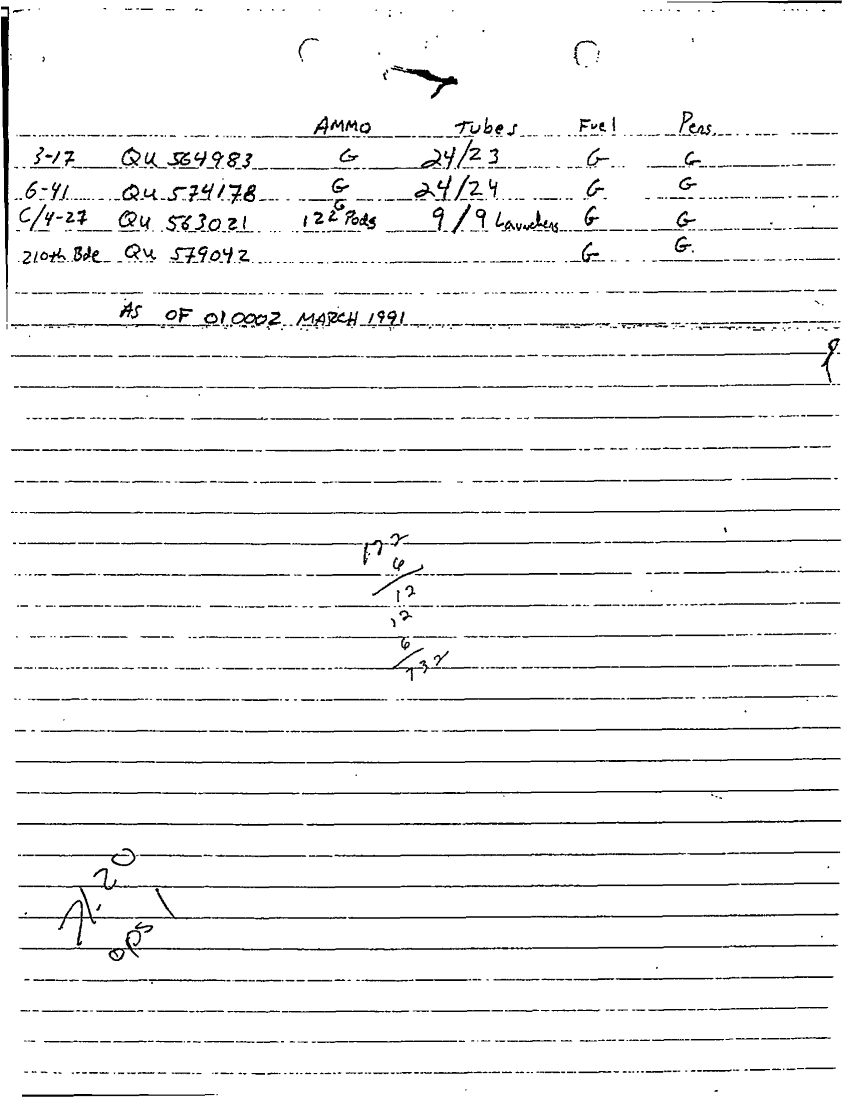 AMMO Tubes Fuel Pers.
3-17 QU 564983 G 24/23 G G
6-41 QU 574178 G 24/24 G G
C/4-27 QU 563021 122 Pods G 9/9 Launchers G G
210th Bde QU 579042 G G.
AS OF 010002 MARCH 1991
122
6
12
12
6
732
20
ops 1